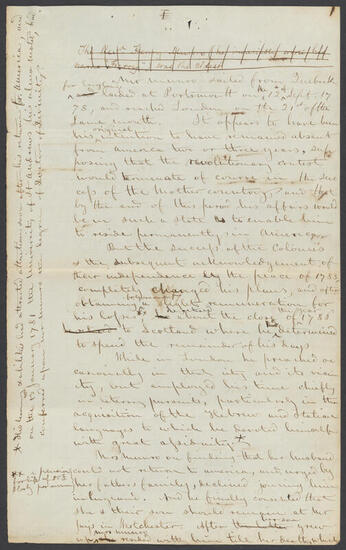 I
Mr Munro sailed from Quebec
for England
landed at Portsmouth on 13th Sept. 17
78, and reached London on the 21st of the
same month. It appears to have been
his original intention to have remained absent
from America two or three years, sup
posing that the revolutionary contest
would terminate of course in the suc
cess of the Mother country, and that
by the end of this period his affairs would
be in such a state as to enable him
to reside permanently in America.
But the success of the Colonies
& the subsequent acknowledgement of
their independence by the peace of 1783
completely changed his plans, and after
obtaining a remuneration for
his losses, about the close of 1785
to Scotland where he determined
to spend the remainder of his days.
While in London he preached oc
casionally in that city and its vicin
ity, but employed his time chiefly
in literary pursuits, particularly in the
acquisition of the Hebrew and Italian
languages to which he devoted himself
with great assiduity.*
Mrs Munro on finding that her husband
could not return to America, and urged by
her father's family, declined joining him
in England. And he finally consented that
she & their son should remain at Mr
Jay's in Rotchester. After the person grew
up Mrs Munro resided with him till her death, which
* His learning & abilities had attracted attention soon after his return from America, and
on the 15 January 1781 the University of St Andrews his alma mater had
conferred upon him the degree of Doctor of Divinity.